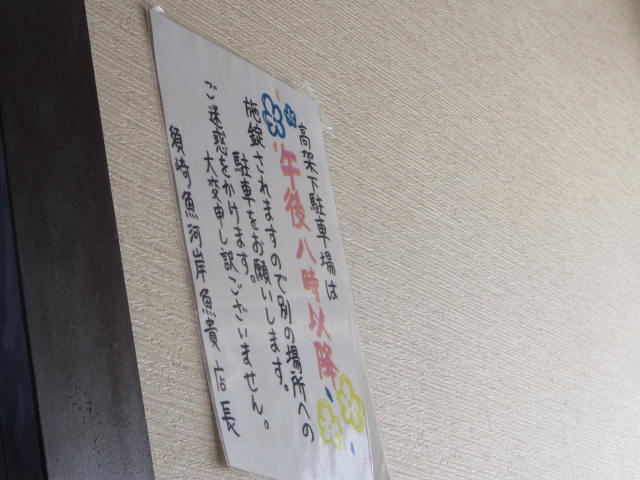 高架下駐車場は
午後八時以降
施錠されますので別の場所への
駐車をお願いします。
ご迷惑をかけます。
大変申し訳ございません。
須崎魚河岸 魚貴 店長